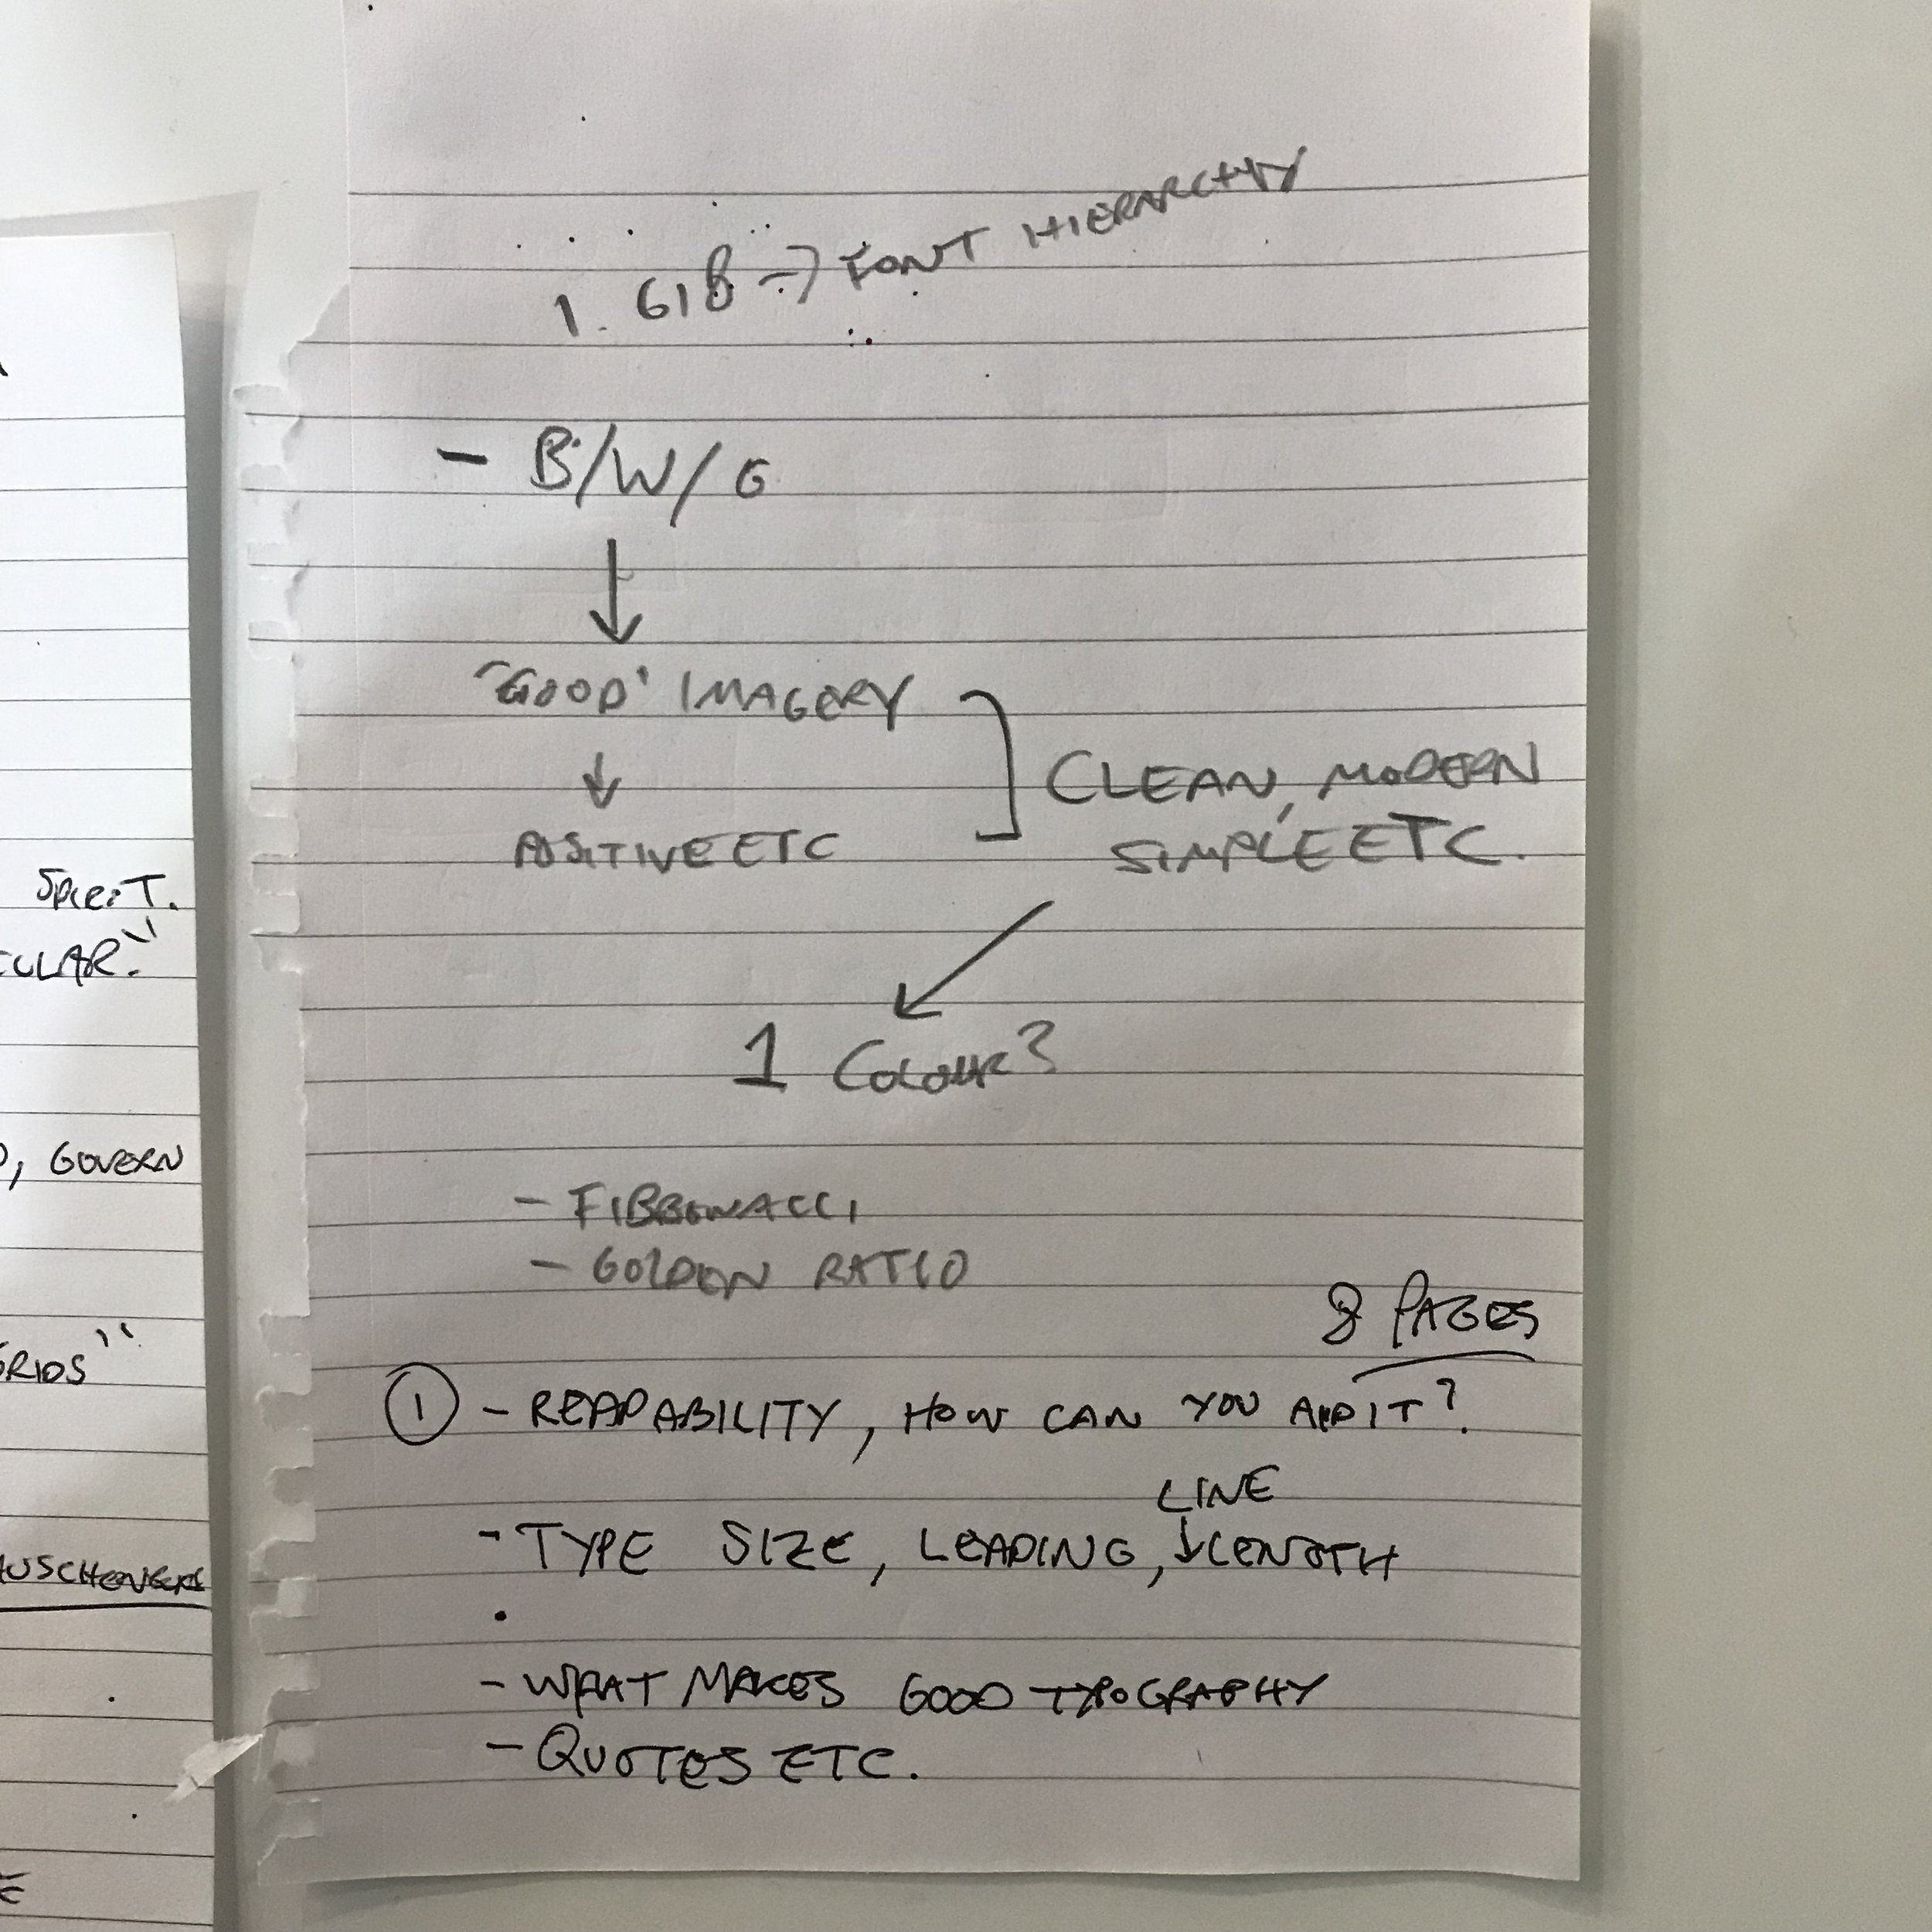 1.618 → FONT HIERARCHY
- B/W/G
↓
"GOOD" IMAGERY
↓
POSITIVE ETC
CLEAN, MODERN
SIMPLE ETC.
1 COLOUR?
- FIBBONACCI
- GOLDEN RATIO
8 PAGES
① - READABILITY, HOW CAN YOU AID IT?
LINE
- TYPE SIZE, LEADING, ↓ LENGTH
- WHAT MAKES GOOD TYPOGRAPHY
- QUOTES ETC.
SPIRIT.
CULAR."
, GOVERN
GRIDS"